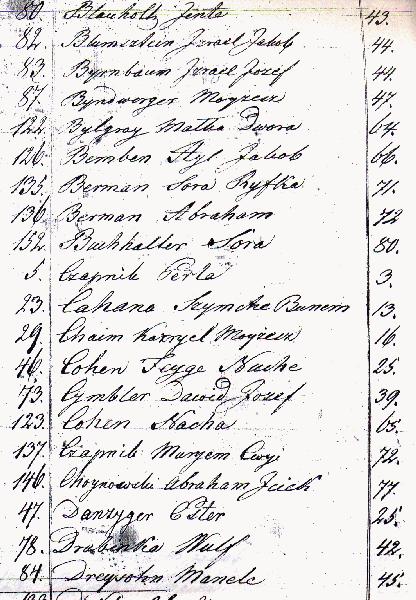 80. Blauholtz Jenta 43.
82. Blumsztein Izrael Jakob 44.
83. Byrnbaum Izrael Jozef 44.
87. Byndwerger Moyzesz 47.
122. Bylgray Malka Dwora 64.
126. Bemben Hyl Jakob 66.
135. Berman Sora Ryfka 71.
136. Berman Abraham 72
152. Buchhalter Sora 80.
5. Czapnik Perla 3.
23. Cahana Szymche Bunem 13.
29. Chaim Kazryel Moyzesz 16.
46. Cohen Fayge Nache 25.
73. Cymbler Dawid Jozef 39.
123. Cohen Nacha 65.
137. Czapnik Maryem Cwyi 72.
146. Choynowski Abraham Icick 77.
47. Danzyger Ester 25.
78. Drabinka Wulf 42.
84. Dreysohn Manele 45.